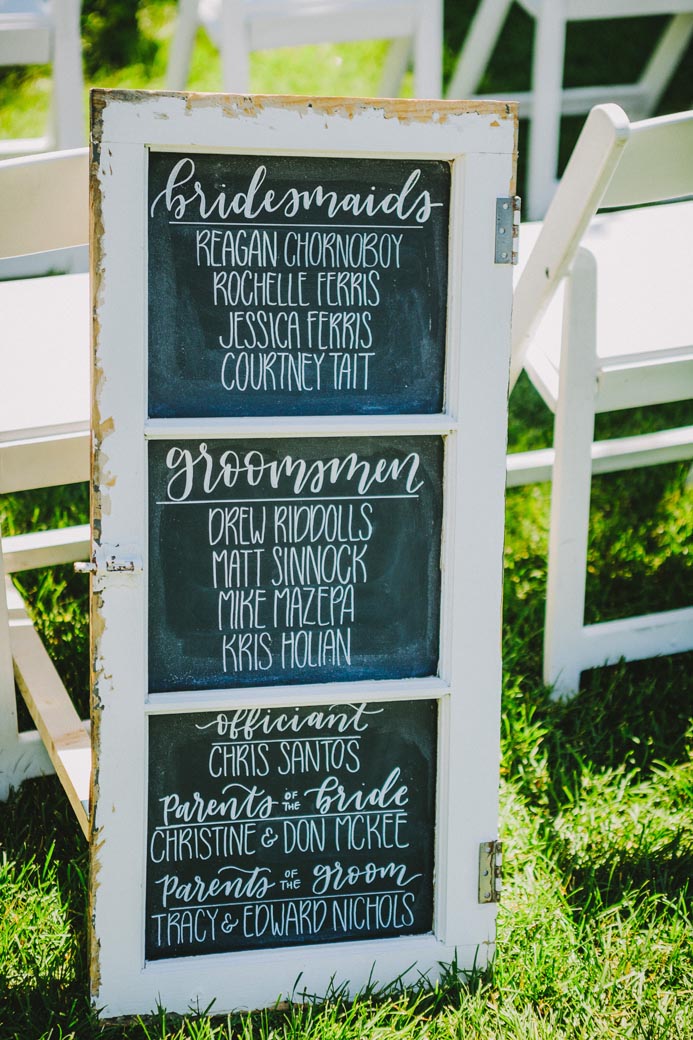 bridesmaids
REAGAN CHORNOBOY
ROCHELLE FERRIS
JESSICA FERRIS
COURTNEY TAIT
groomsmen
DREW RIDDOLLS
MATT SINNOCK
MIKE MAZEPA
KRIS HOLIAN
officiant
CHRIS SANTOS
Parents OF THE bride
CHRISTINE & DON MCKEE
Parents OF THE groom
TRACY & EDWARD NICHOLS